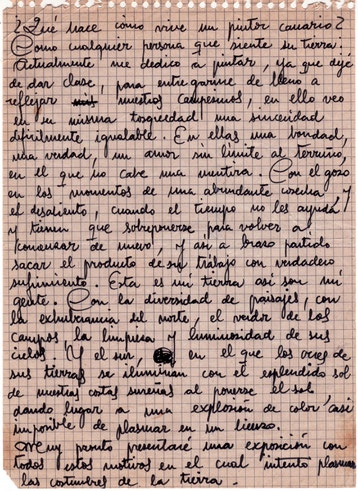 ¿Qué hace como vive un pintor canario?
Como cualquier persona que siente su tierra.
Actualmente me dedico a pintar, ya que dejé
de dar clase, para entregarme de lleno a
reflejar nuestros campesinos, en ello veo
en su misma tosquedad una sinceridad
dificilmente igualable. En ellas una bondad,
una verdad, un amor sin limite al terruño,
en el que no cabe una mentira. Con el gozo
en los momentos de una abundante cosecha y
el desaliento, cuando el tiempo no les ayuda
y tienen que sobreponerse para volver a
comenzar de nuevo, y asi a brazo partido
sacar el producto de su trabajo con verdadero
sufrimiento. Esta es mi tierra asi son mi
gente. Con la diversidad de paisajes, con
la exhuberancia del norte, el verdor de los
campos la limpieza y luminosidad de sus
cielos. Y el sur, en el que los ocres de
sus tierras se iluminan con el esplendido sol
de nuestras costas sureñas al ponerse el sol,
dando lugar a una explosión de color, casi
imposible de plasmar en un lienzo.
Muy pronto presentaré una exposición con
todos estos motivos en el cual intento plasmar
las costumbres de la tierra.